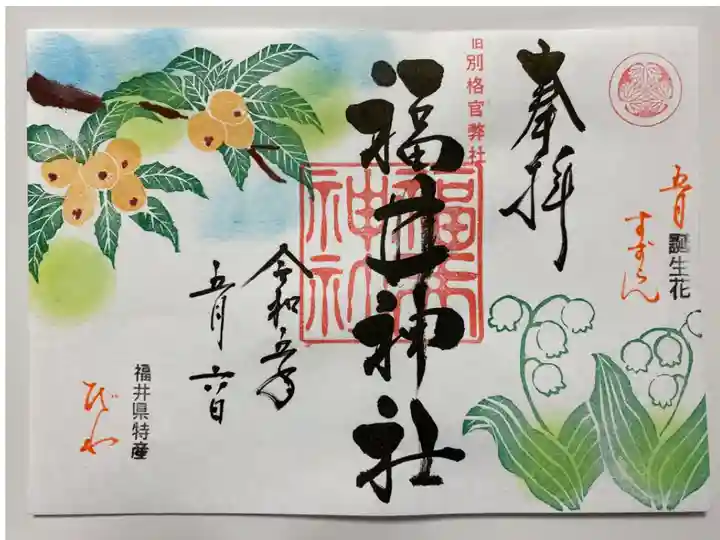 五月
誕生花
すずらん
奉拝
旧別格官弊社
福井神社
福井神社
令和五年
五月六日
福井県特産
びわ